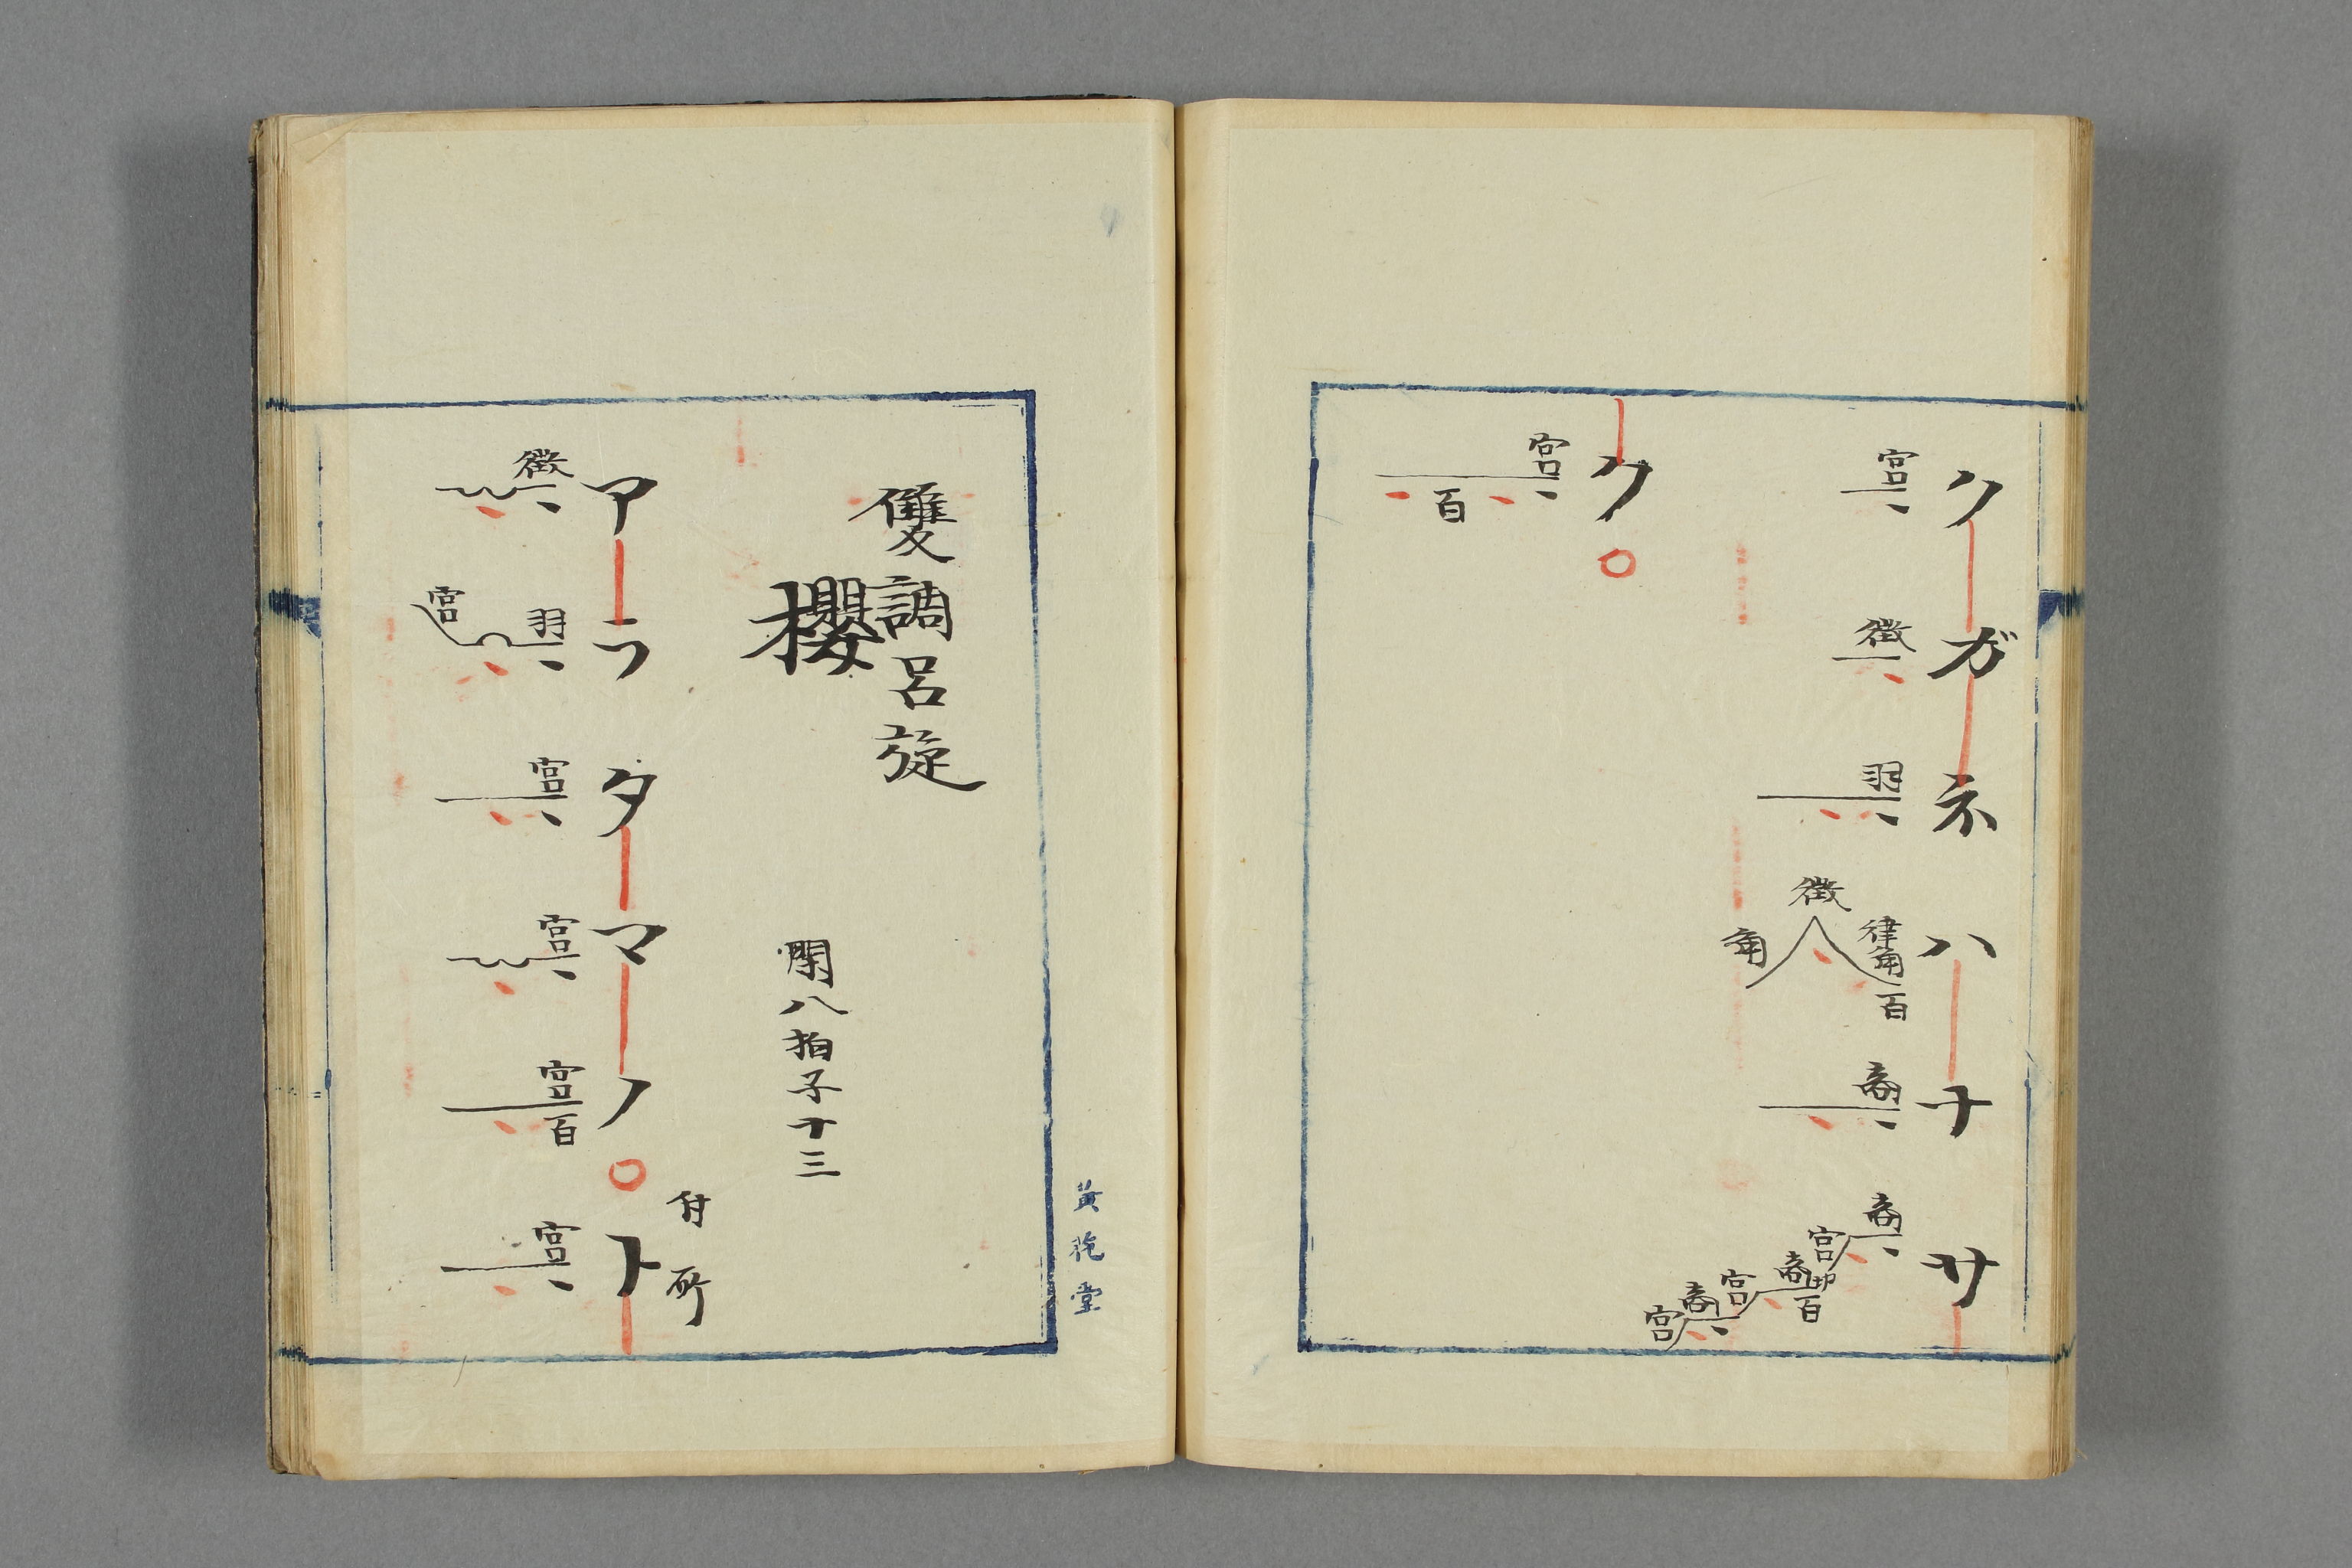 クガネハナサ
宮 徴 羽 律角 百 徴 角 商 商 宮 商 百 宮 商 宮
ク
宮 百
雙調呂旋
櫻 八拍子十三
付所
アラタマノト
徴 羽 宮 宮 宮 宮百 宮
黄 堂